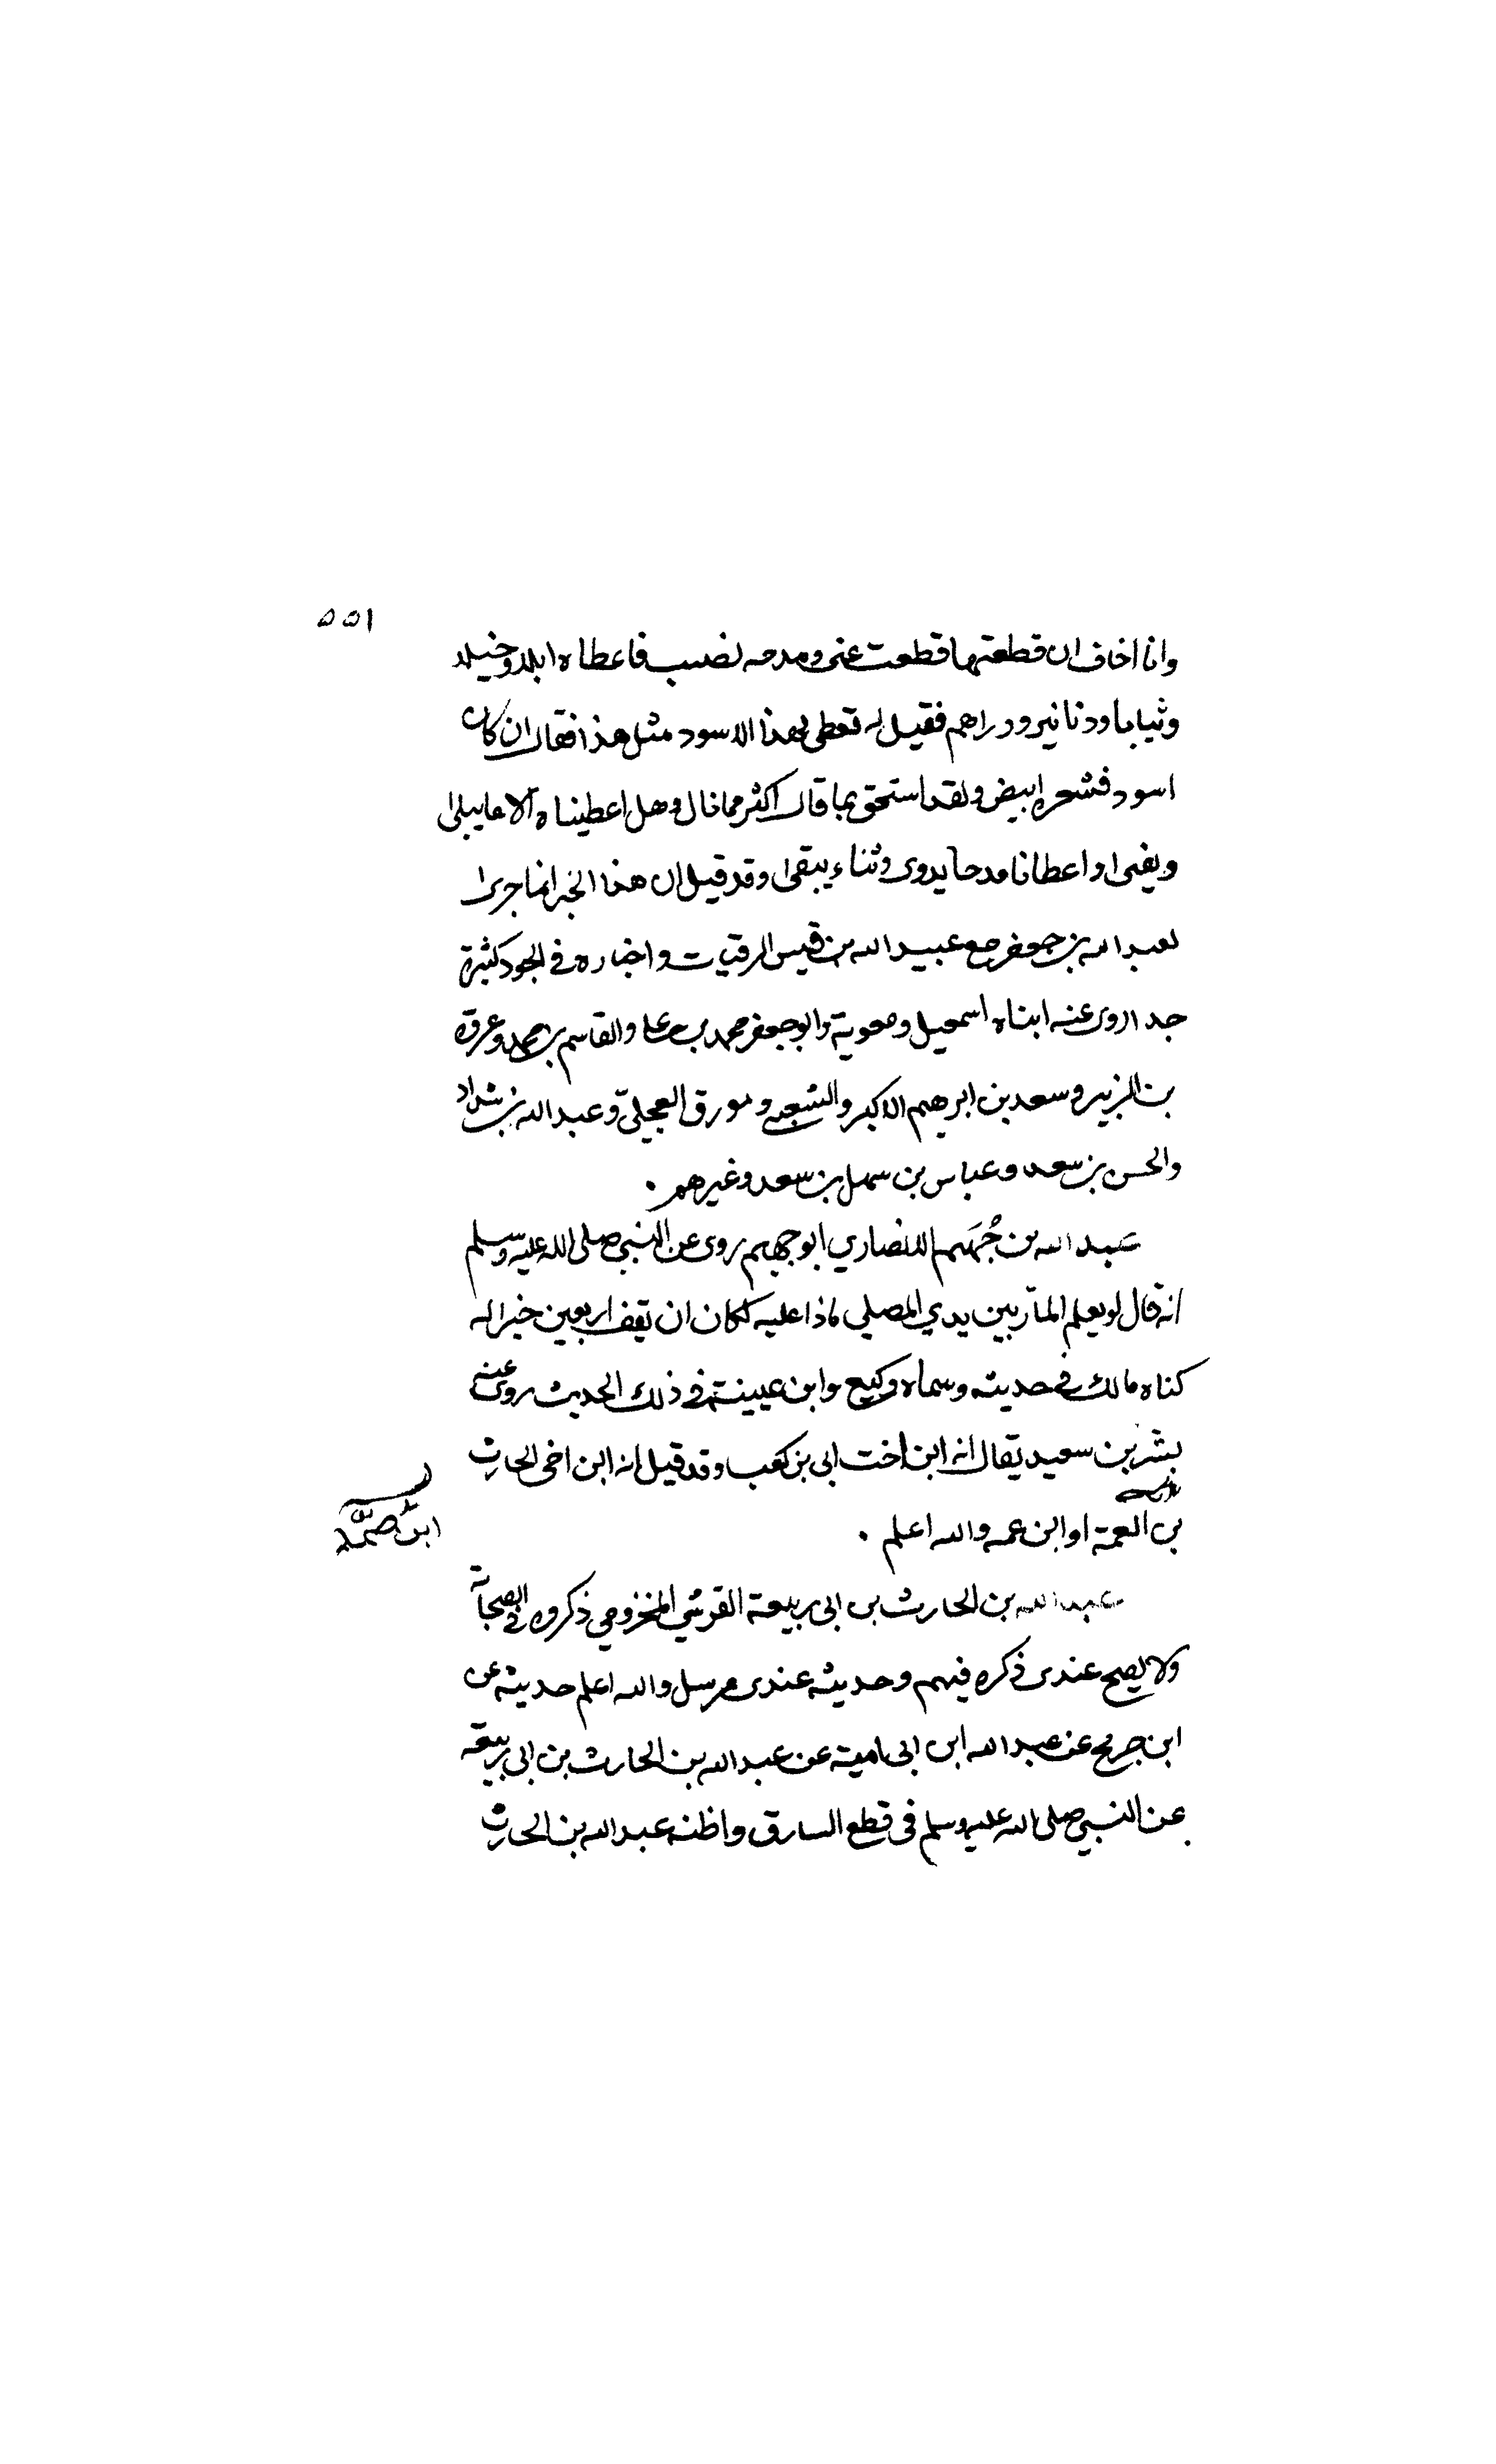 ١٥٥
وانا اخاف ان قطعتها قطعت عنى ومدحه نصيب فاعطاه ابلا وخيلا
وثيابا ودنانير ودراهم فقيل له تعطى لهذا الاسود مثل هذا فقال ان كان
اسود فشعره ابيض ولقد استحق بما قال اكثر مما نال وهل اعطيناه الا ما يبلى
ويفنى واعطانا مدحا يروى وثناء يبقى وقد قيل ان هذا الخبر انما جرى
لعبد الله بن جعفر مع عبيد الله بن قيس الرقيات واخباره فى الجود كثيرة
جدا روى عنه ابناه اسمعيل ومعوية وابو جعفر محمد بن على والقاسم بن محمد وعروة
بن الزبير وسعد بن ابرهيم الاكبر والشعبى ومورق العجلىّ وعبد الله بن شداد
والحسن بن سعد وعباس بن سهل بن سعد وغيرهم .
عبد الله بن جُهَيم الانصاري ابو جهيم روى عن النبي صلى الله عليه وسلم
انه قال لو يعلم المآر بين يدي المصلي ماذا عليه لكان ان يقف اربعين خير له
كناه مالك في حديثه وسماه وكيع وابن عيينة فى ذلك الحديث روى عنه
بشر بن سعيد يقال انه ابن اخت ابى بن كعب وقد قيل انه ابن اخى الحارث
بن العمة او ابن عمه والله اعلم .
ابن صمّة
عبد الله بن الحارث بن ابى ربيعة القرشي المخزومي ذكروه في الصحابة
ولا يصح عندى ذكره فيهم وحديثه عندى مرسل والله اعلم حديثه عن
ابن جريج عن عبد الله ابن ابى امية عن عبد الله بن الحارث بن ابى ربيعة
عن النبي صلى الله عليه وسلم فى قطع السارق واظنه عبد الله بن الحارث